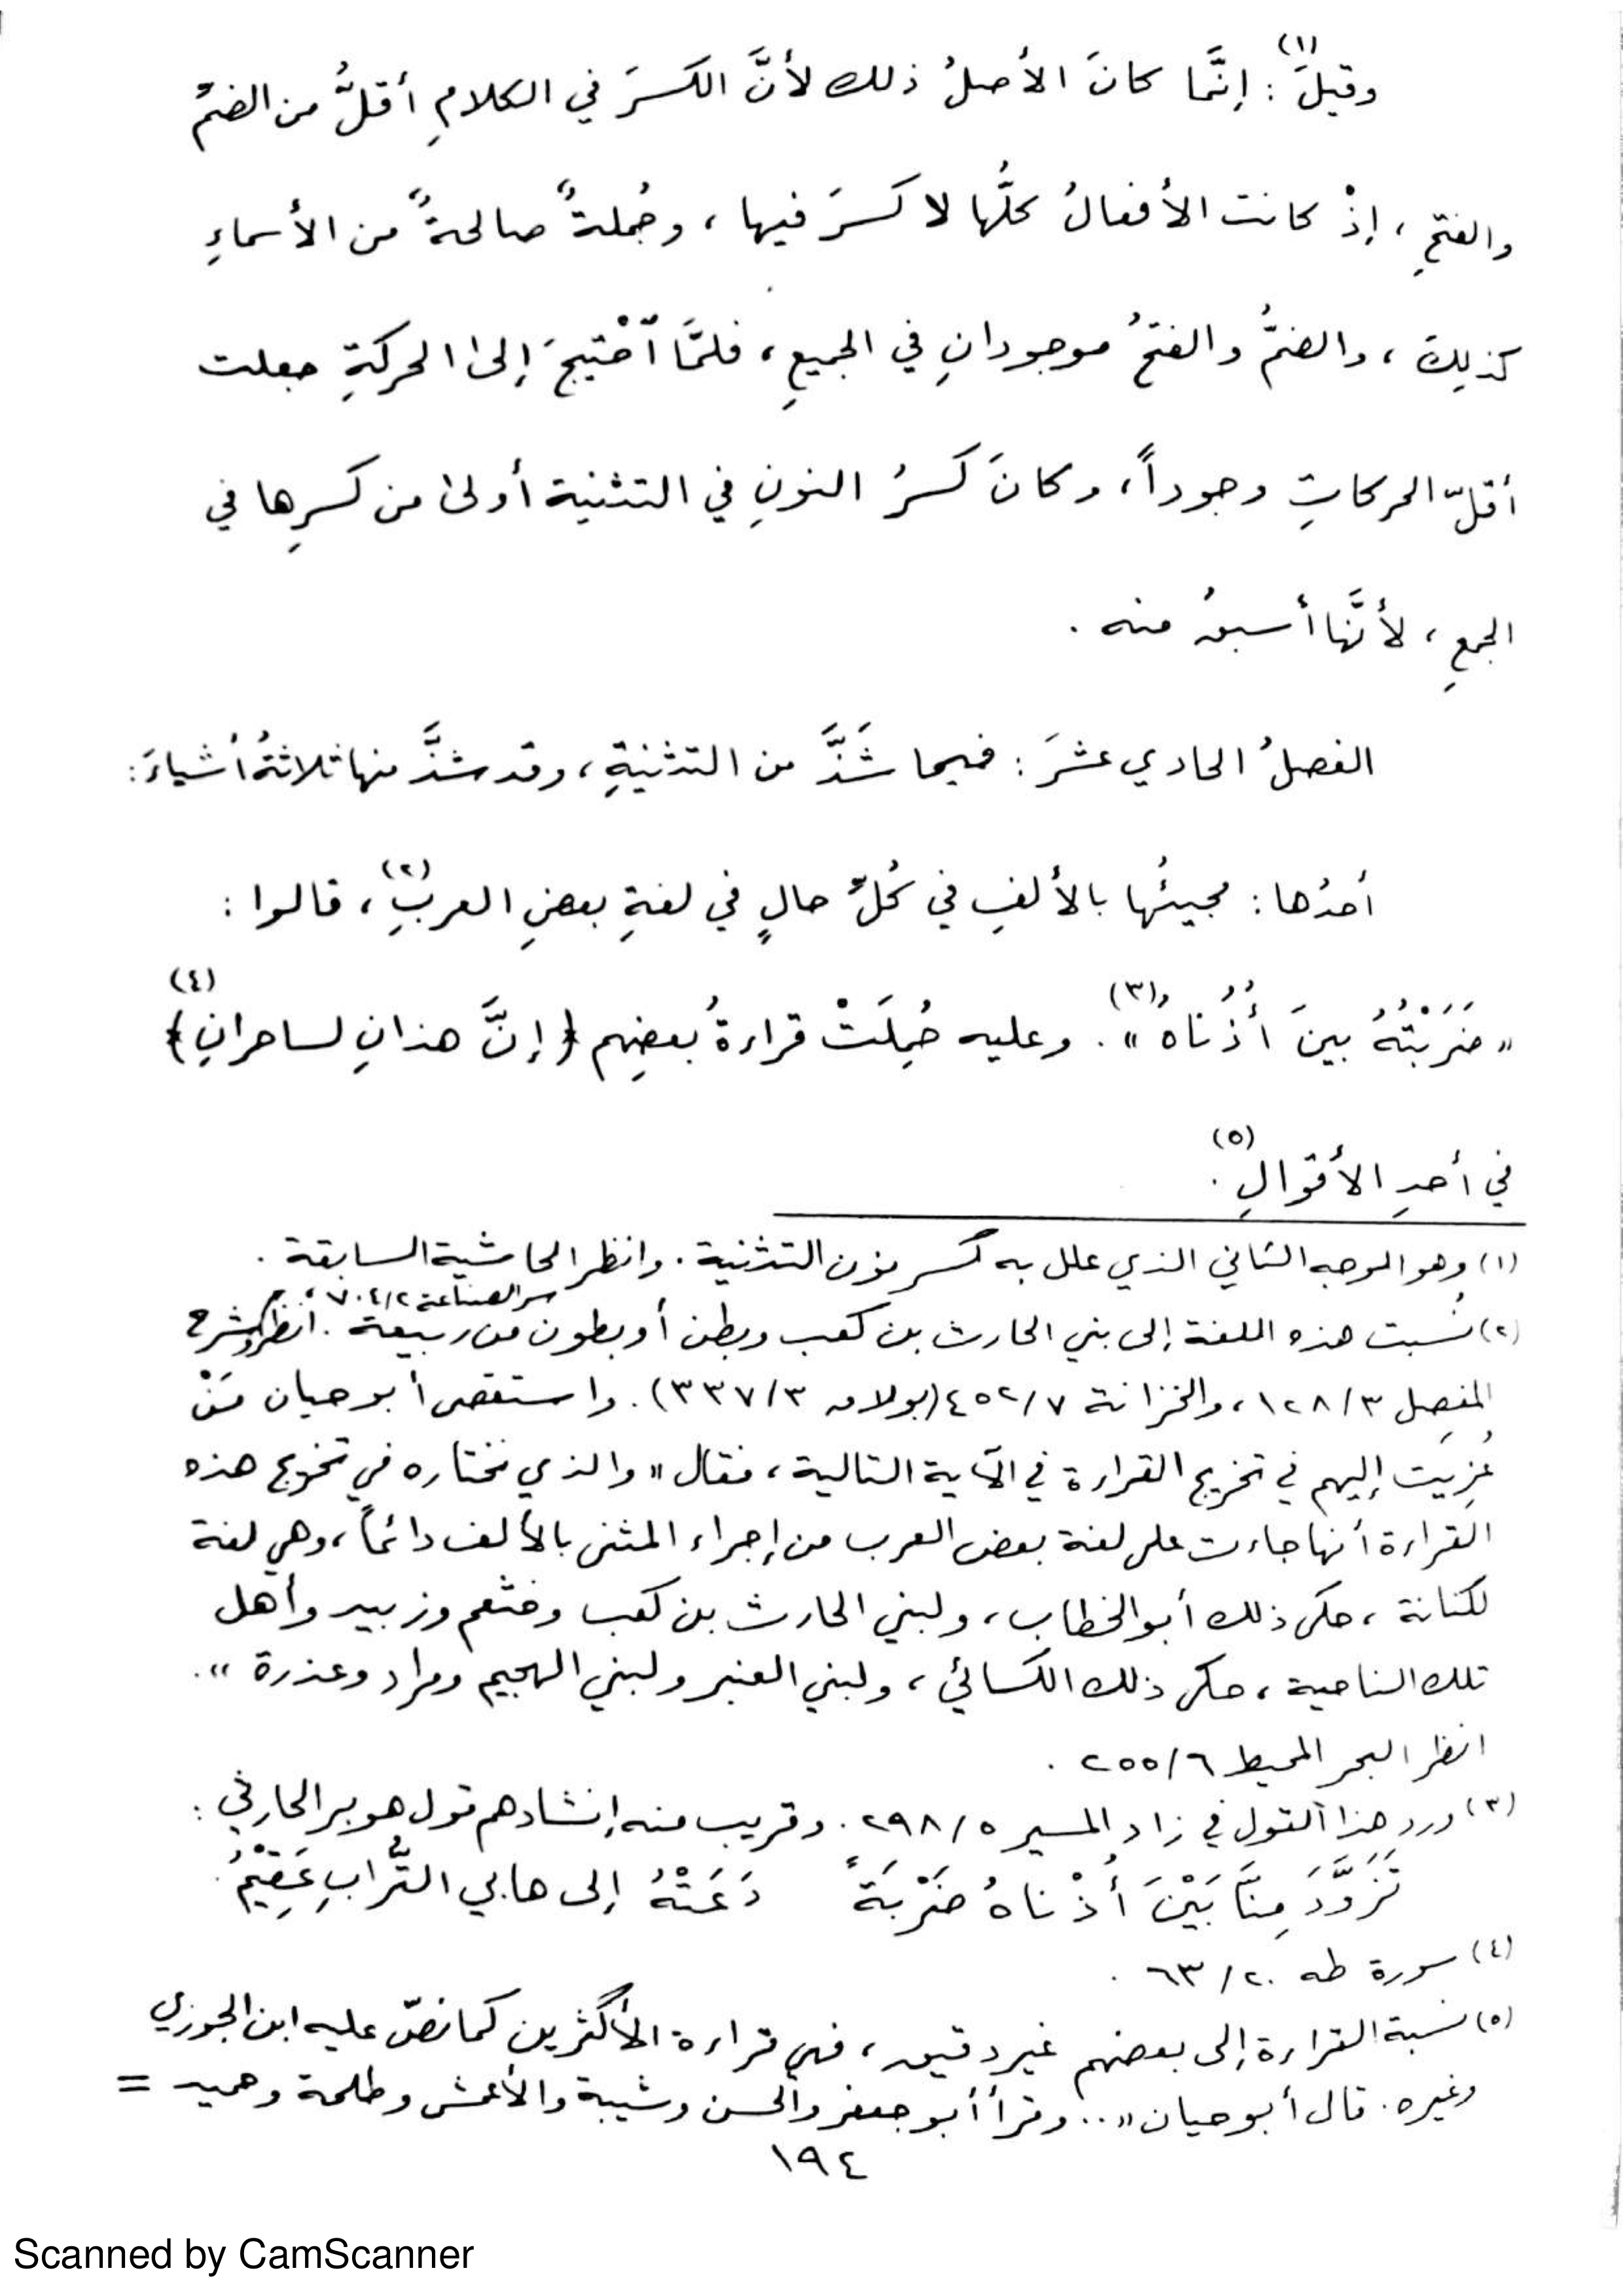 وقيلَ(١): إنَّما كانَ الأصلُ ذلك لأنَّ الكسرَ في الكلامِ أقلُّ من الضمِّ
والفتحِ، إذْ كانت الأفعالُ كلُّها لا كسرَ فيها، وجُملةٌ صالحةٌ من الأسماءِ
كذلِكَ، والضمُّ والفتحُ موجودانِ في الجميعِ، فلمَّا ٱحْتيجَ إلىٰ الحركةِ جعلت
أقلّ الحركاتِ وجوداً، وكانَ كسرُ النونِ في التثنية أولىٰ من كسرِها في
الجمعِ، لأنَّها أسبقُ منه.
الفصلُ الحادي عشرَ: فيما شَذَّ من التثنيةِ، وقد شذَّ منها ثلاثةُ أشياءَ:
أحدُها: مجيئُها بالألفِ في كُلِّ حالٍ في لغةِ بعضِ العربِ(٢)، قالوا:
«ضَرَبْتُهُ بينَ أُذُناهُ»(٣). وعليه حُمِلَتْ قراءةُ بعضِهم ﴿إنَّ هذانِ لساحرانِ﴾(٤)
في أحدِ الأقوالِ(٥).
(١) وهو الوجه الثاني الذي علل به كسر نون التثنية. وانظر الحاشية السابقة.
سر الصناعة ٧٠٤/٢،
(٢) نُسبت هذه اللغة إلى بني الحارث بن كعب وبطن أو بطون من ربيعة. انظر وشرح
المفصل ١٢٨/٣، والخزانة ٤٥٢/٧ (بولاق ٣٣٧/٣). واستقصى أبو حيان مَنْ
عُزِيَت إليهم في تخريج القراءة في الآية التالية، فقال «والذي نختاره في تخريج هذه
القراءة أنها جاءت على لغة بعض العرب من إجراء المثنى بالألف دائماً، وهي لغة
لكنانة، حكى ذلك أبو الخطاب، ولبني الحارث بن كعب وخثعم وزبيد وأهل
تلك الناحية، حكى ذلك الكسائي، ولبني العنبر ولبني الهجيم ومراد وعذرة».
انظر البحر المحيط ٢٥٥/٦.
(٣) ورد هذا القول في زاد المسير ٢٩٨/٥. وقريب منه إنشادهم قول هوبر الحارثي:
تَزَوَّدَ مِنَّا بَيْنَ أُذْناهُ ضَرْبَةً دَعَتْهُ إلى هابي التُّرابِ عَقِيْمُ.
(٤) سورة طه ٦٣/٢٠.
(٥) نسبة القراءة إلى بعضهم غير دقيق، فهي قراءة الأكثرين كما نصّ عليه ابن الجوزي
وغيره. قال أبو حيان «.. وقرأ أبو جعفر والحسن وشيبة والأعمش وطلحة وحميد =
١٩٤
Scanned by CamScanner